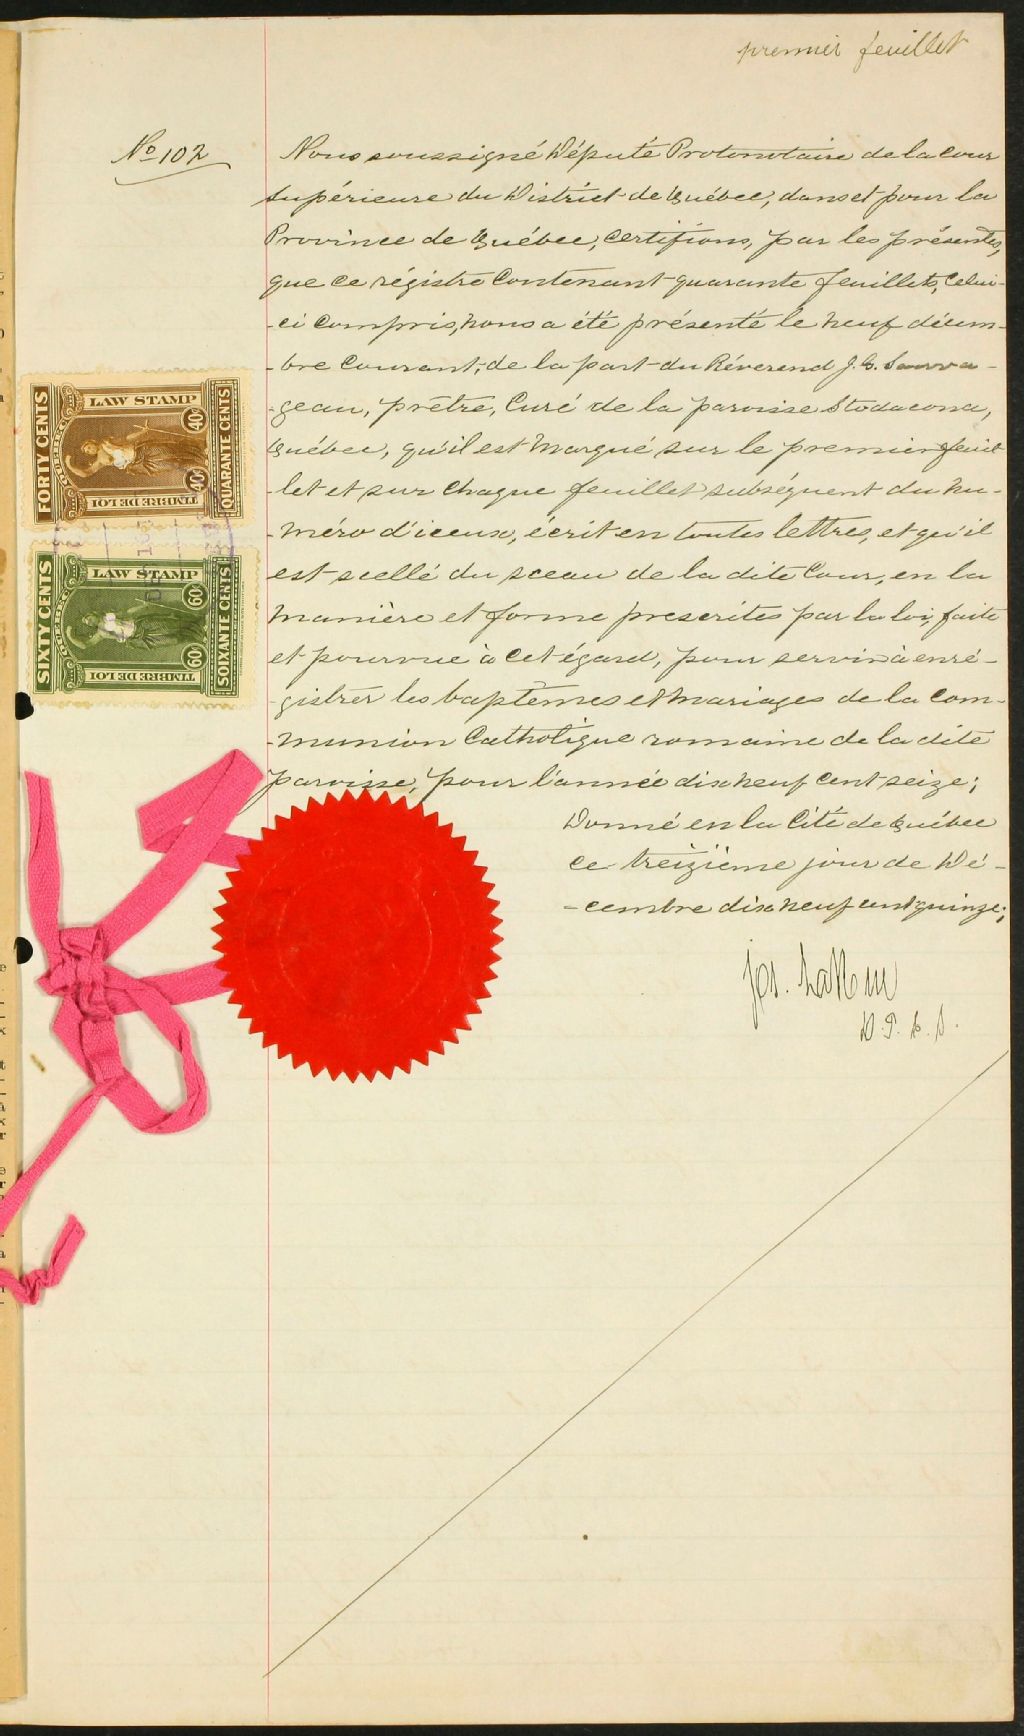 premier feuillet
No 102
Nous soussigné Député Protonotaire de la cour
supérieure du District de Québec, dans et pour la
Province de Québec, certifions, par les présentes,
que ce régistre contenant quarante feuillets, celui-
-ci compris, nous a été présenté le neuf décem-
-bre courant, de la part du Révérend J. G. Sauva-
-geau, prêtre, Curé de la paroisse Stadacona,
Québec, qu'il est marqué sur le premier feuil
let et sur chaque feuillet subséquent du nu-
-méro d'iceux, écrit en toutes lettres, et qu'il
est scellé du sceau de la dite Cour, en la
manière et forme prescrites par la loi, faite
et pourvue à cet égard, pour servir à enré-
-gistrer les baptêmes et mariages de la com-
-munion Catholique romaine de la dite
paroisse, pour l'année dix neuf cent seize;
Donné en la Cité de Québec
ce treizième jour de Dé-
-cembre dix neuf cent quinze;
Jos.
D. P. C. S.
FORTY CENTS
LAW STAMP
40c
40c
QUARANTE CENTS
TIMBRE DE LOI
QUEBEC
SIXTY CENTS
LAW STAMP
60c
60c
SOIXANTE CENTS
TIMBRE DE LOI
QUEBEC